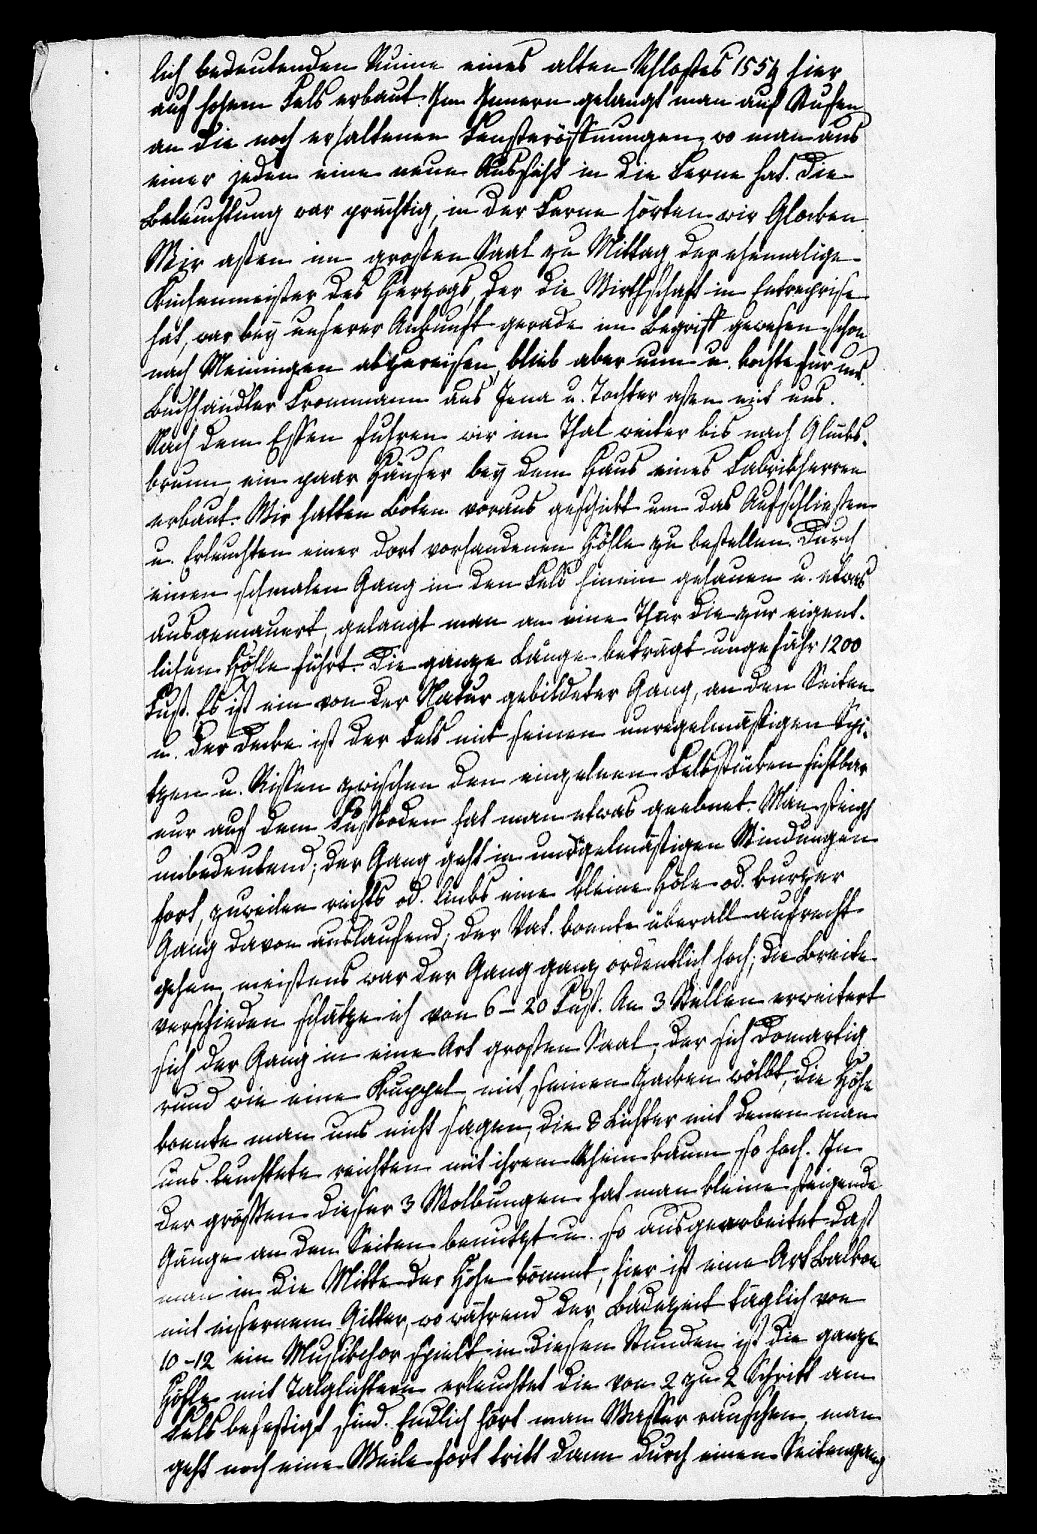 lich bedeutenden Ruine eines alten Schloßes 1554 hier
auf hohem Fels erbaut. Im Innern gelangt man auf Stufen
an die noch erhaltenen Fensteröffnungen, wo man aus
einer jeden eine neue Aussicht in die Ferne hat. Die
Beleuchtung war prächtig, in der Ferne hörten wir Glocken.
Wir aßen im großen Saal zu Mittag, der ehemalige
Küchenmeister des Herzogs, der die Wirthschaft in Entreprise
hat, war bey unserer Ankunft gerade im Begriff gewesen schon
nach Meiningen abzureisen, blieb aber nun u. kochte für uns.
Buchhändler Frommann aus Jena u. Tochter aßen mit uns.
Nach dem Essen fuhren wir im Thal weiter bis nach Glücks-
brunn, ein paar Häuser bey dem Haus eines Fabrikherren
erbaut. Wir hatten Boten voraus geschickt um das Aufschließen
u. Erleuchten einer dort vorhandenen Höhle zu bestellen. Durch
einen schmalen Gang in den Fels hinein gehauen u. etwas
ausgemauert, gelangt man an eine Thür die zur eigent-
lichen Höhle führt. Die ganze Länge beträgt ungefähr 1200
Fuß. Es ist ein von der Natur gebildeter Gang, an den Seiten
u. der Decke ist der Fels mit seinen unregelmäßigen Spi-
tzen u. Rissen zwischen den einzelnen Felsstücken sichtbar
nur auf dem Fußboden hat man etwas geebnet. Man steigt
unbedeutend; der Gang geht in unregelmäßigen Windungen
fort, zuweilen rechts od. links eine kleine Höle od. kurzer
Gang davon auslaufend; der Vat. konnte überall aufrecht
gehen, meistens war der Gang ganz ordentlich hoch; die Breite
verschieden schätze ich von 6–20 Fuß. An 3 Stellen erweitert
sich der Gang in eine Art großen Saal, der sich domartig
rund wie eine Kuppel mit seinen Zacken wölbt, die Höhe
konnte man uns nicht sagen, die 8 Lichter mit denen man
uns leuchtete reichten mit ihrem Schein kaum so hoch. In
der größten dieser 3 Wölbungen hat man kleine steigende
Gänge an den Seiten benutzt u. so ausgearbeitet daß
man in die Mitte der Höhe kömmt, hier ist eine Art Balkon
mit eisernem Gitter, wo während der Badezeit täglich von
10–12 ein Musikchor spielt in diesen Stunden ist die ganze
Höhle mit Talglichtern erleuchtet die von 2 zu 2 Schritt am
Fels befestigt sind. Endlich hört man Wasser rauschen, man
geht noch eine Weile fort tritt dann durch einen Seitengang